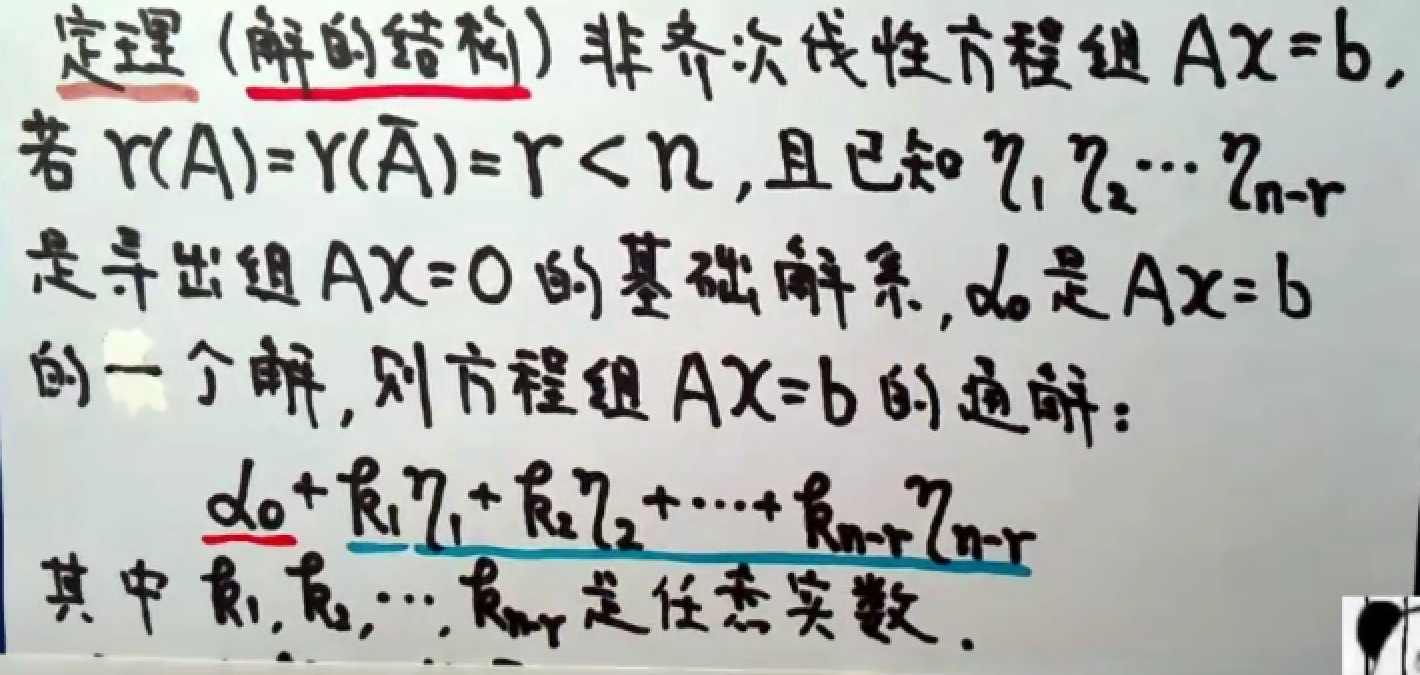 定理（解的结构）非齐次线性方程组 AX=b,
若 r(A)=r(Ā)=r<n, 且已知 η₁ η₂…ηₙ₋ᵣ
是导出组 AX=0 的基础解系, α₀是 AX=b
的一个解, 则方程组 AX=b 的通解:
α₀+k₁η₁+k₂η₂+…+kₙ₋ᵣηₙ₋ᵣ
其中 k₁,k₂,…,kₙ₋ᵣ是任意实数.